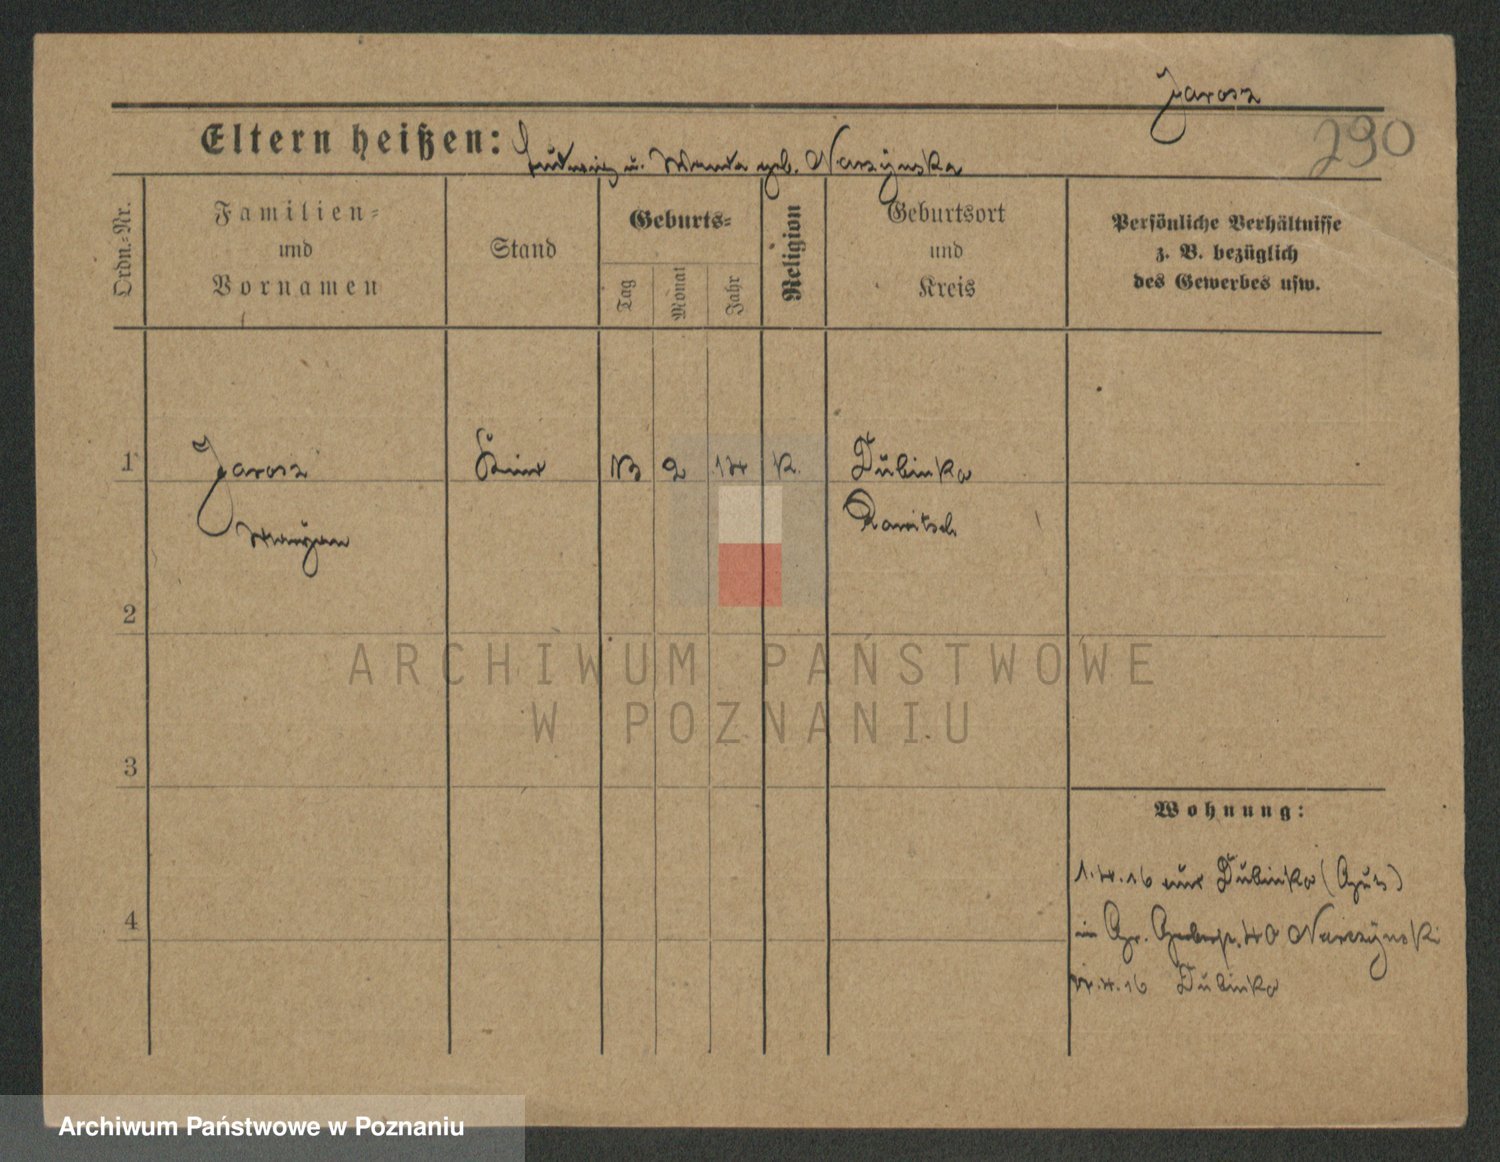 Jarosz
290
Eltern heißen: Ludwig u. Wanda geb. Narzynska
Ordn.-Nr.
Familien-
und
Vornamen
Stand
Geburts-
Tag
Monat
Jahr
Religion
Geburtsort
und
Kreis
Persönliche Verhältnisse
z. B. bezüglich
des Gewerbes usw.
1 Jarosz Kind 2 14 K. Dubinko
Maryan Rawitsch
2
3
4
Wohnung:
1.4.16 aus Dubinko (Gut)
in Gr. 40 Narzynski
.4.16 Dubinko
ARCHIWUM PAŃSTWOWE
W POZNANIU
Archiwum Państwowe w Poznaniu